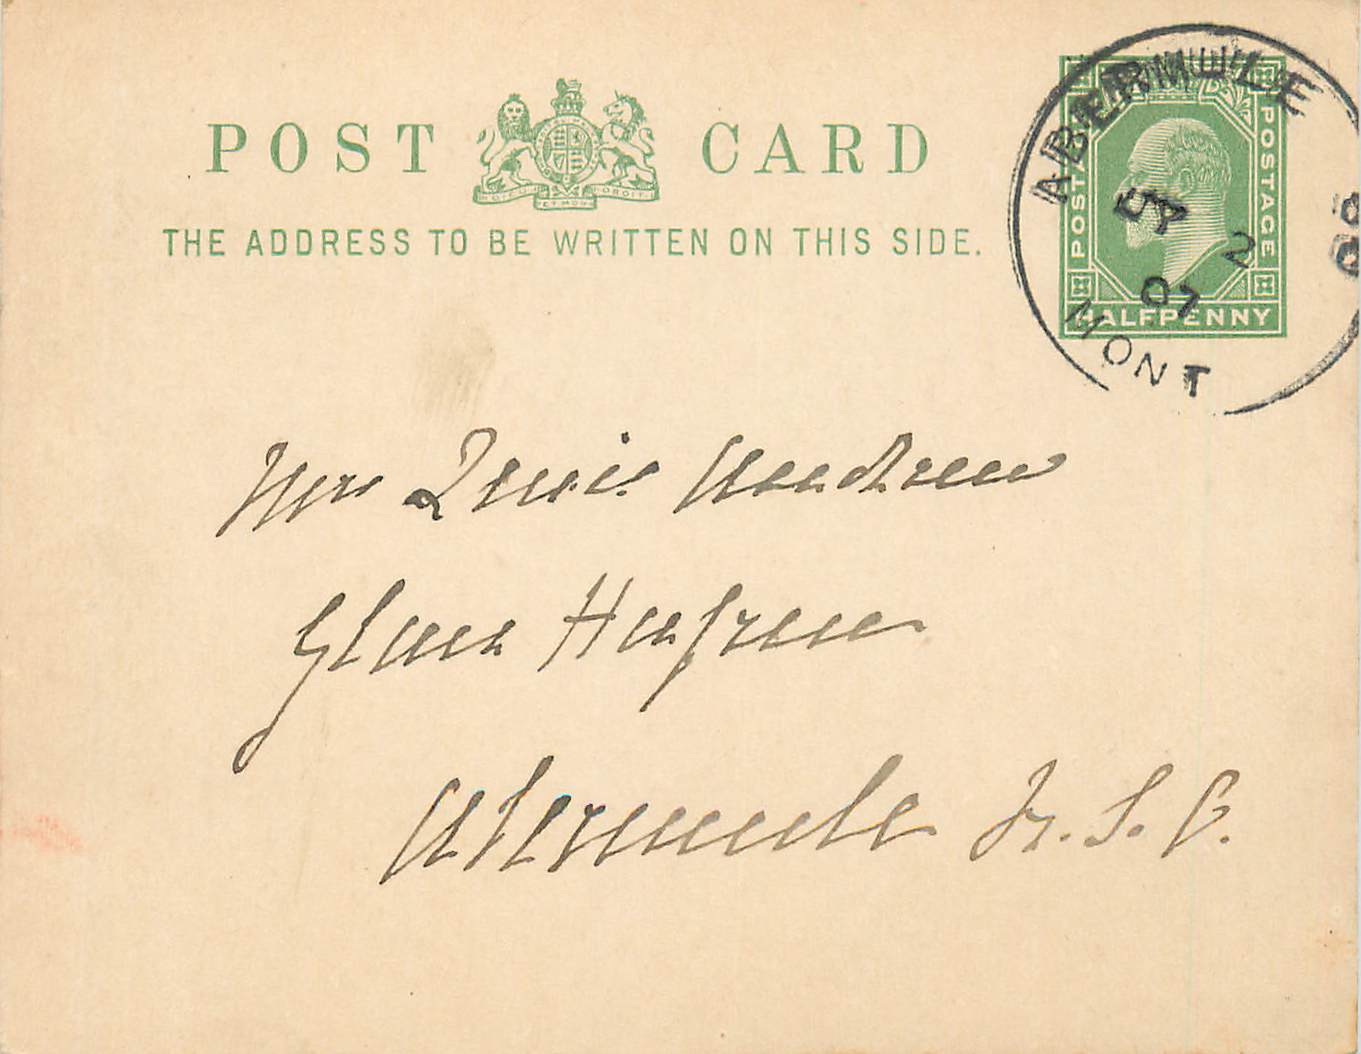 POST CARD
THE ADDRESS TO BE WRITTEN ON THIS SIDE.
POSTAGE
HALFPENNY
ABERMULE
2
07
MONT
Mrs Lewis Woodrow
Glan Hafren
Abermule S.O.